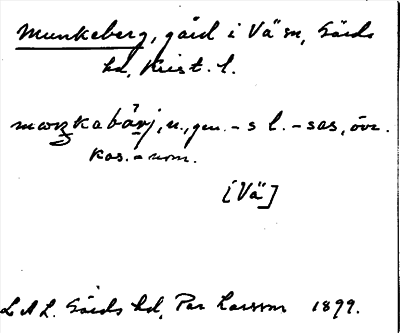 Munkeberg, gård i Vä sn, Gärds
hd, Krist. l.
kabärj, n., gen. -s l. -sas, övr.
kas. = nom.
[Vä]
LAL. Gärds hd, Per Larsson 1899.